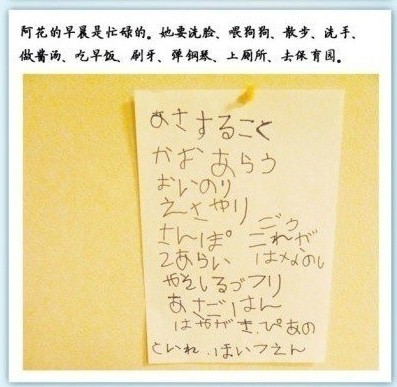 阿花的早晨是忙碌的。她要洗脸、喂狗狗、散步、洗手、
做酱汤、吃早饭、刷牙、弹钢琴、上厕所、去保育园。
あさすること
かおあらう
おいのり
えさやり
さんぽ
てあらい
みそしるづくり
あさごはん
はみがき、ぴあの
といれ.ほいくえん
これが